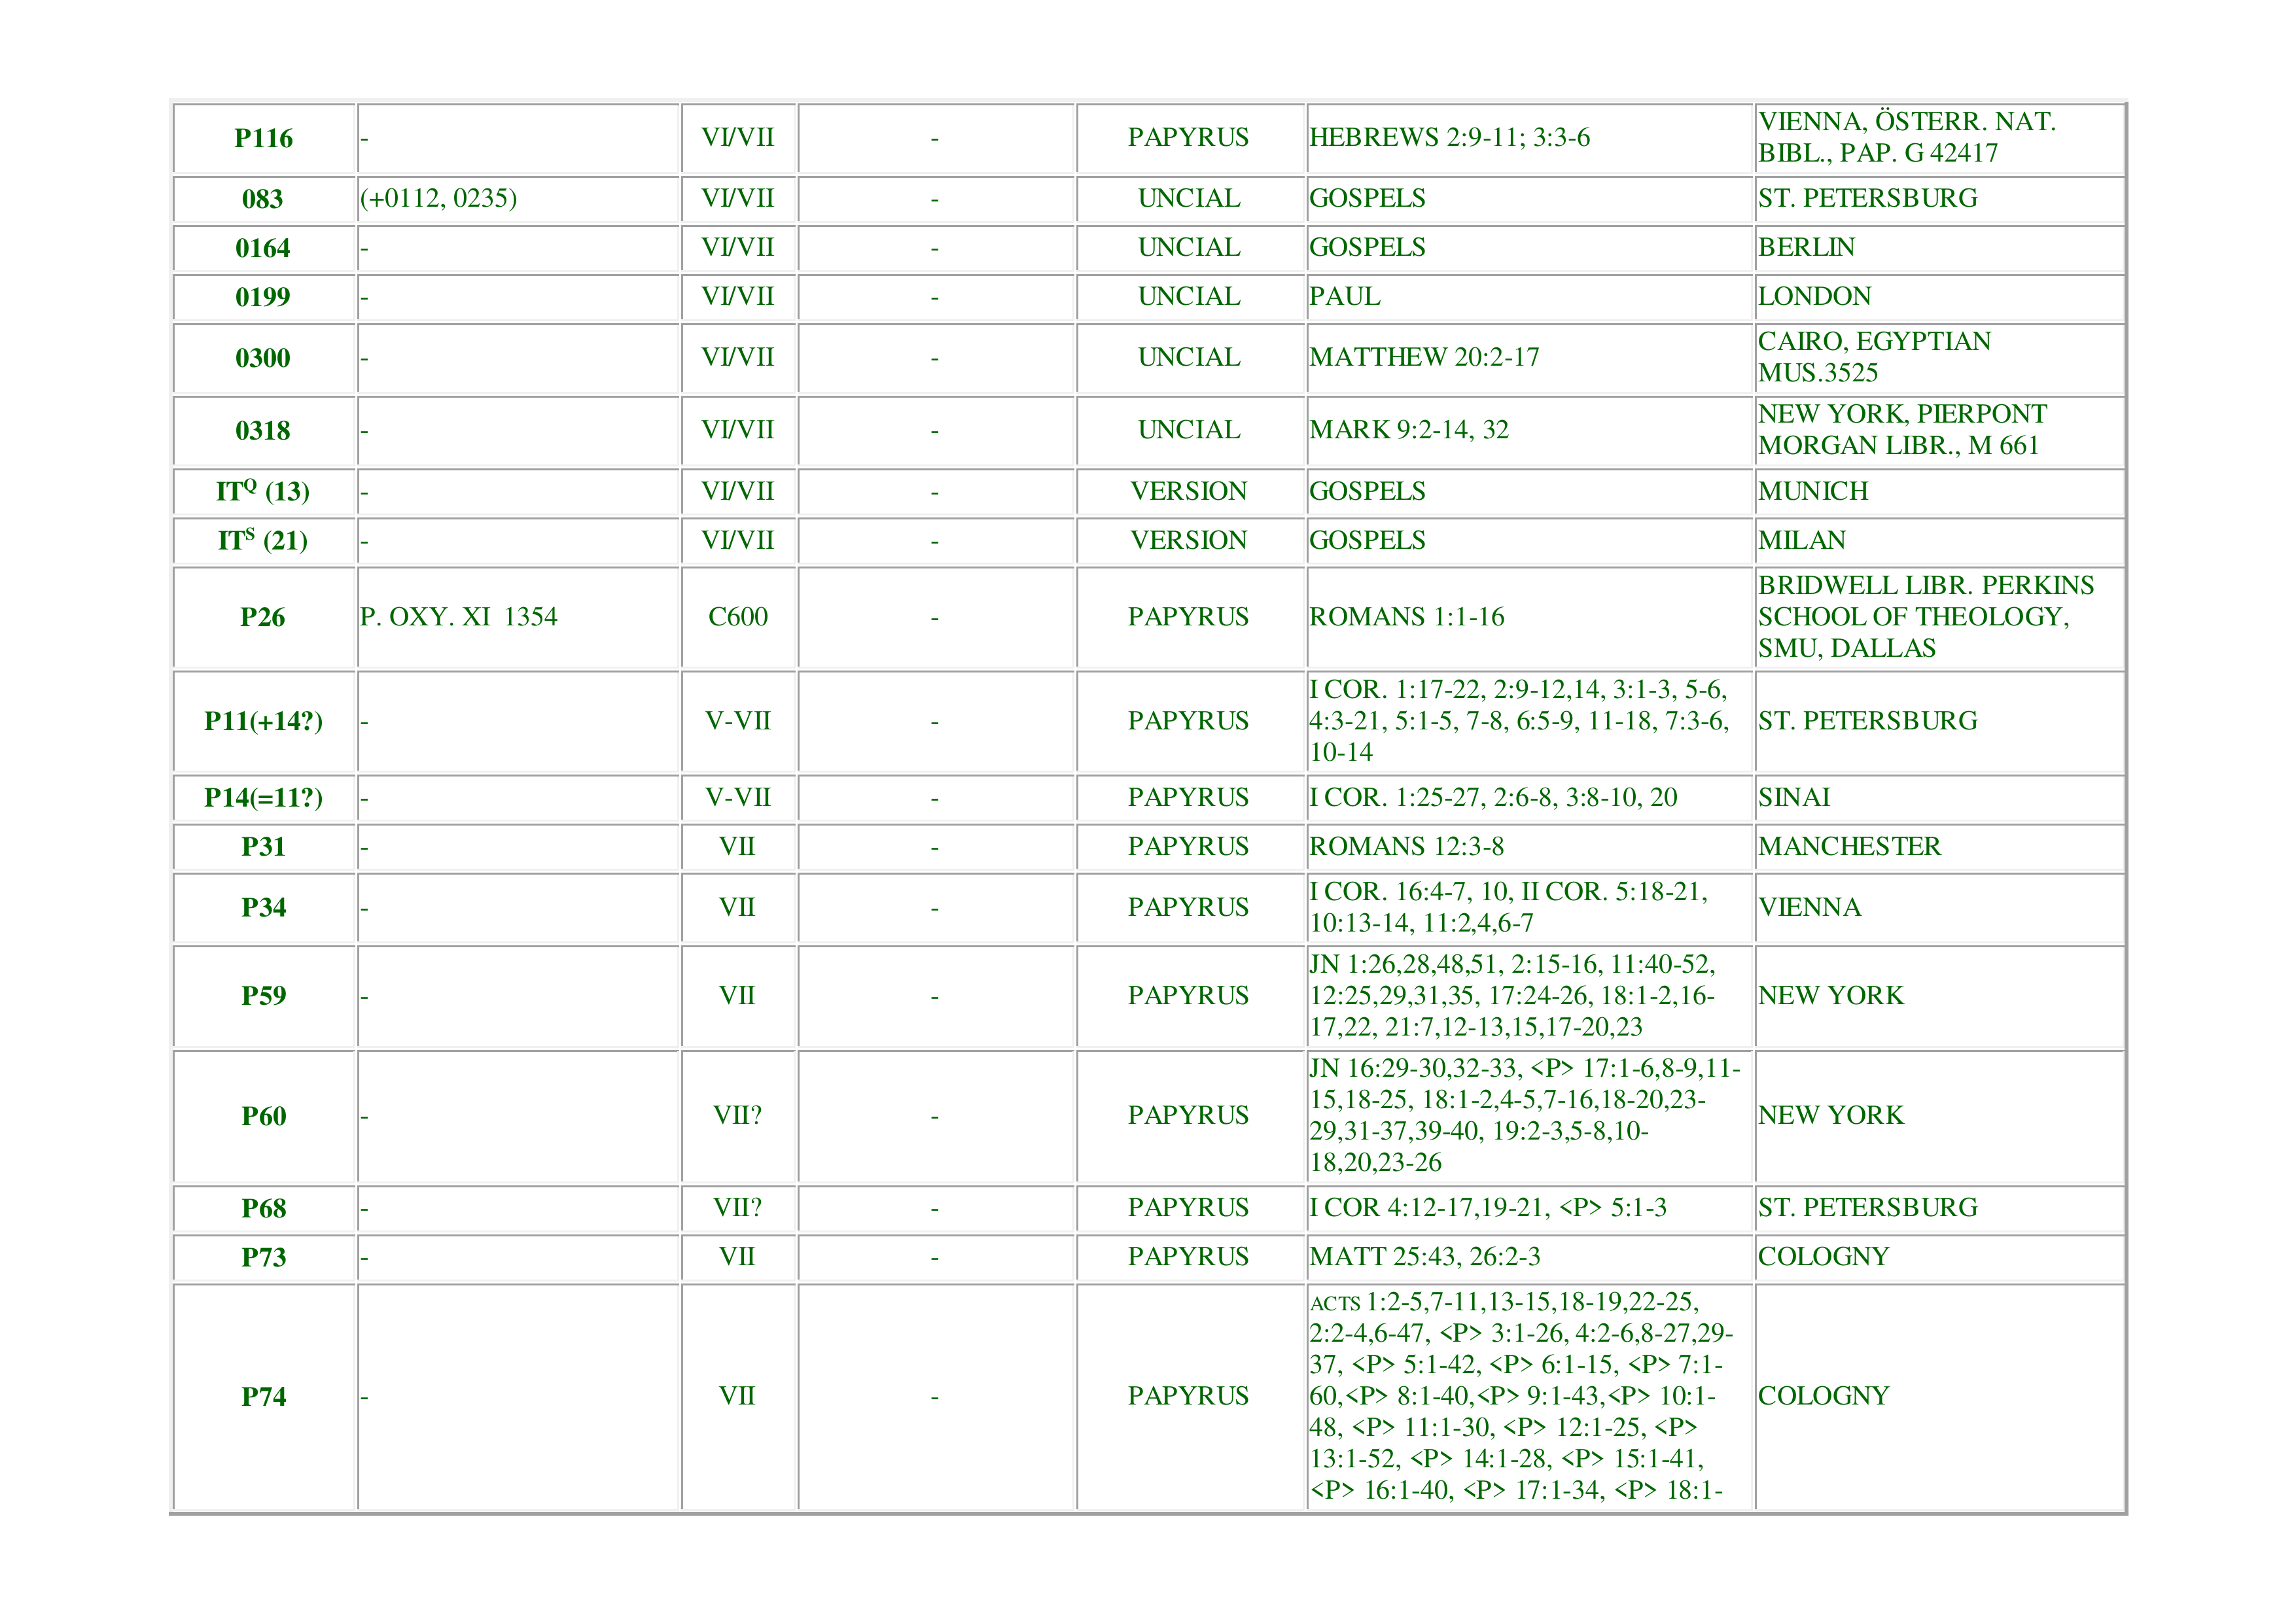 P116 - VI/VII - PAPYRUS HEBREWS 2:9-11; 3:3-6 VIENNA, ÖSTERR. NAT.
BIBL., PAP. G 42417
083 (+0112, 0235) VI/VII - UNCIAL GOSPELS ST. PETERSBURG
0164 - VI/VII - UNCIAL GOSPELS BERLIN
0199 - VI/VII - UNCIAL PAUL LONDON
0300 - VI/VII - UNCIAL MATTHEW 20:2-17 CAIRO, EGYPTIAN
MUS.3525
0318 - VI/VII - UNCIAL MARK 9:2-14, 32 NEW YORK, PIERPONT
MORGAN LIBR., M 661
IT^Q (13) - VI/VII - VERSION GOSPELS MUNICH
IT^S (21) - VI/VII - VERSION GOSPELS MILAN
P26 P. OXY. XI 1354 C600 - PAPYRUS ROMANS 1:1-16 BRIDWELL LIBR. PERKINS
SCHOOL OF THEOLOGY,
SMU, DALLAS
P11(+14?) - V-VII - PAPYRUS I COR. 1:17-22, 2:9-12,14, 3:1-3, 5-6,
4:3-21, 5:1-5, 7-8, 6:5-9, 11-18, 7:3-6,
10-14 ST. PETERSBURG
P14(=11?) - V-VII - PAPYRUS I COR. 1:25-27, 2:6-8, 3:8-10, 20 SINAI
P31 - VII - PAPYRUS ROMANS 12:3-8 MANCHESTER
P34 - VII - PAPYRUS I COR. 16:4-7, 10, II COR. 5:18-21,
10:13-14, 11:2,4,6-7 VIENNA
P59 - VII - PAPYRUS JN 1:26,28,48,51, 2:15-16, 11:40-52,
12:25,29,31,35, 17:24-26, 18:1-2,16-
17,22, 21:7,12-13,15,17-20,23 NEW YORK
P60 - VII? - PAPYRUS JN 16:29-30,32-33, <P> 17:1-6,8-9,11-
15,18-25, 18:1-2,4-5,7-16,18-20,23-
29,31-37,39-40, 19:2-3,5-8,10-
18,20,23-26 NEW YORK
P68 - VII? - PAPYRUS I COR 4:12-17,19-21, <P> 5:1-3 ST. PETERSBURG
P73 - VII - PAPYRUS MATT 25:43, 26:2-3 COLOGNY
P74 - VII - PAPYRUS ACTS 1:2-5,7-11,13-15,18-19,22-25,
2:2-4,6-47, <P> 3:1-26, 4:2-6,8-27,29-
37, <P> 5:1-42, <P> 6:1-15, <P> 7:1-
60,<P> 8:1-40,<P> 9:1-43,<P> 10:1-
48, <P> 11:1-30, <P> 12:1-25, <P>
13:1-52, <P> 14:1-28, <P> 15:1-41,
<P> 16:1-40, <P> 17:1-34, <P> 18:1- COLOGNY